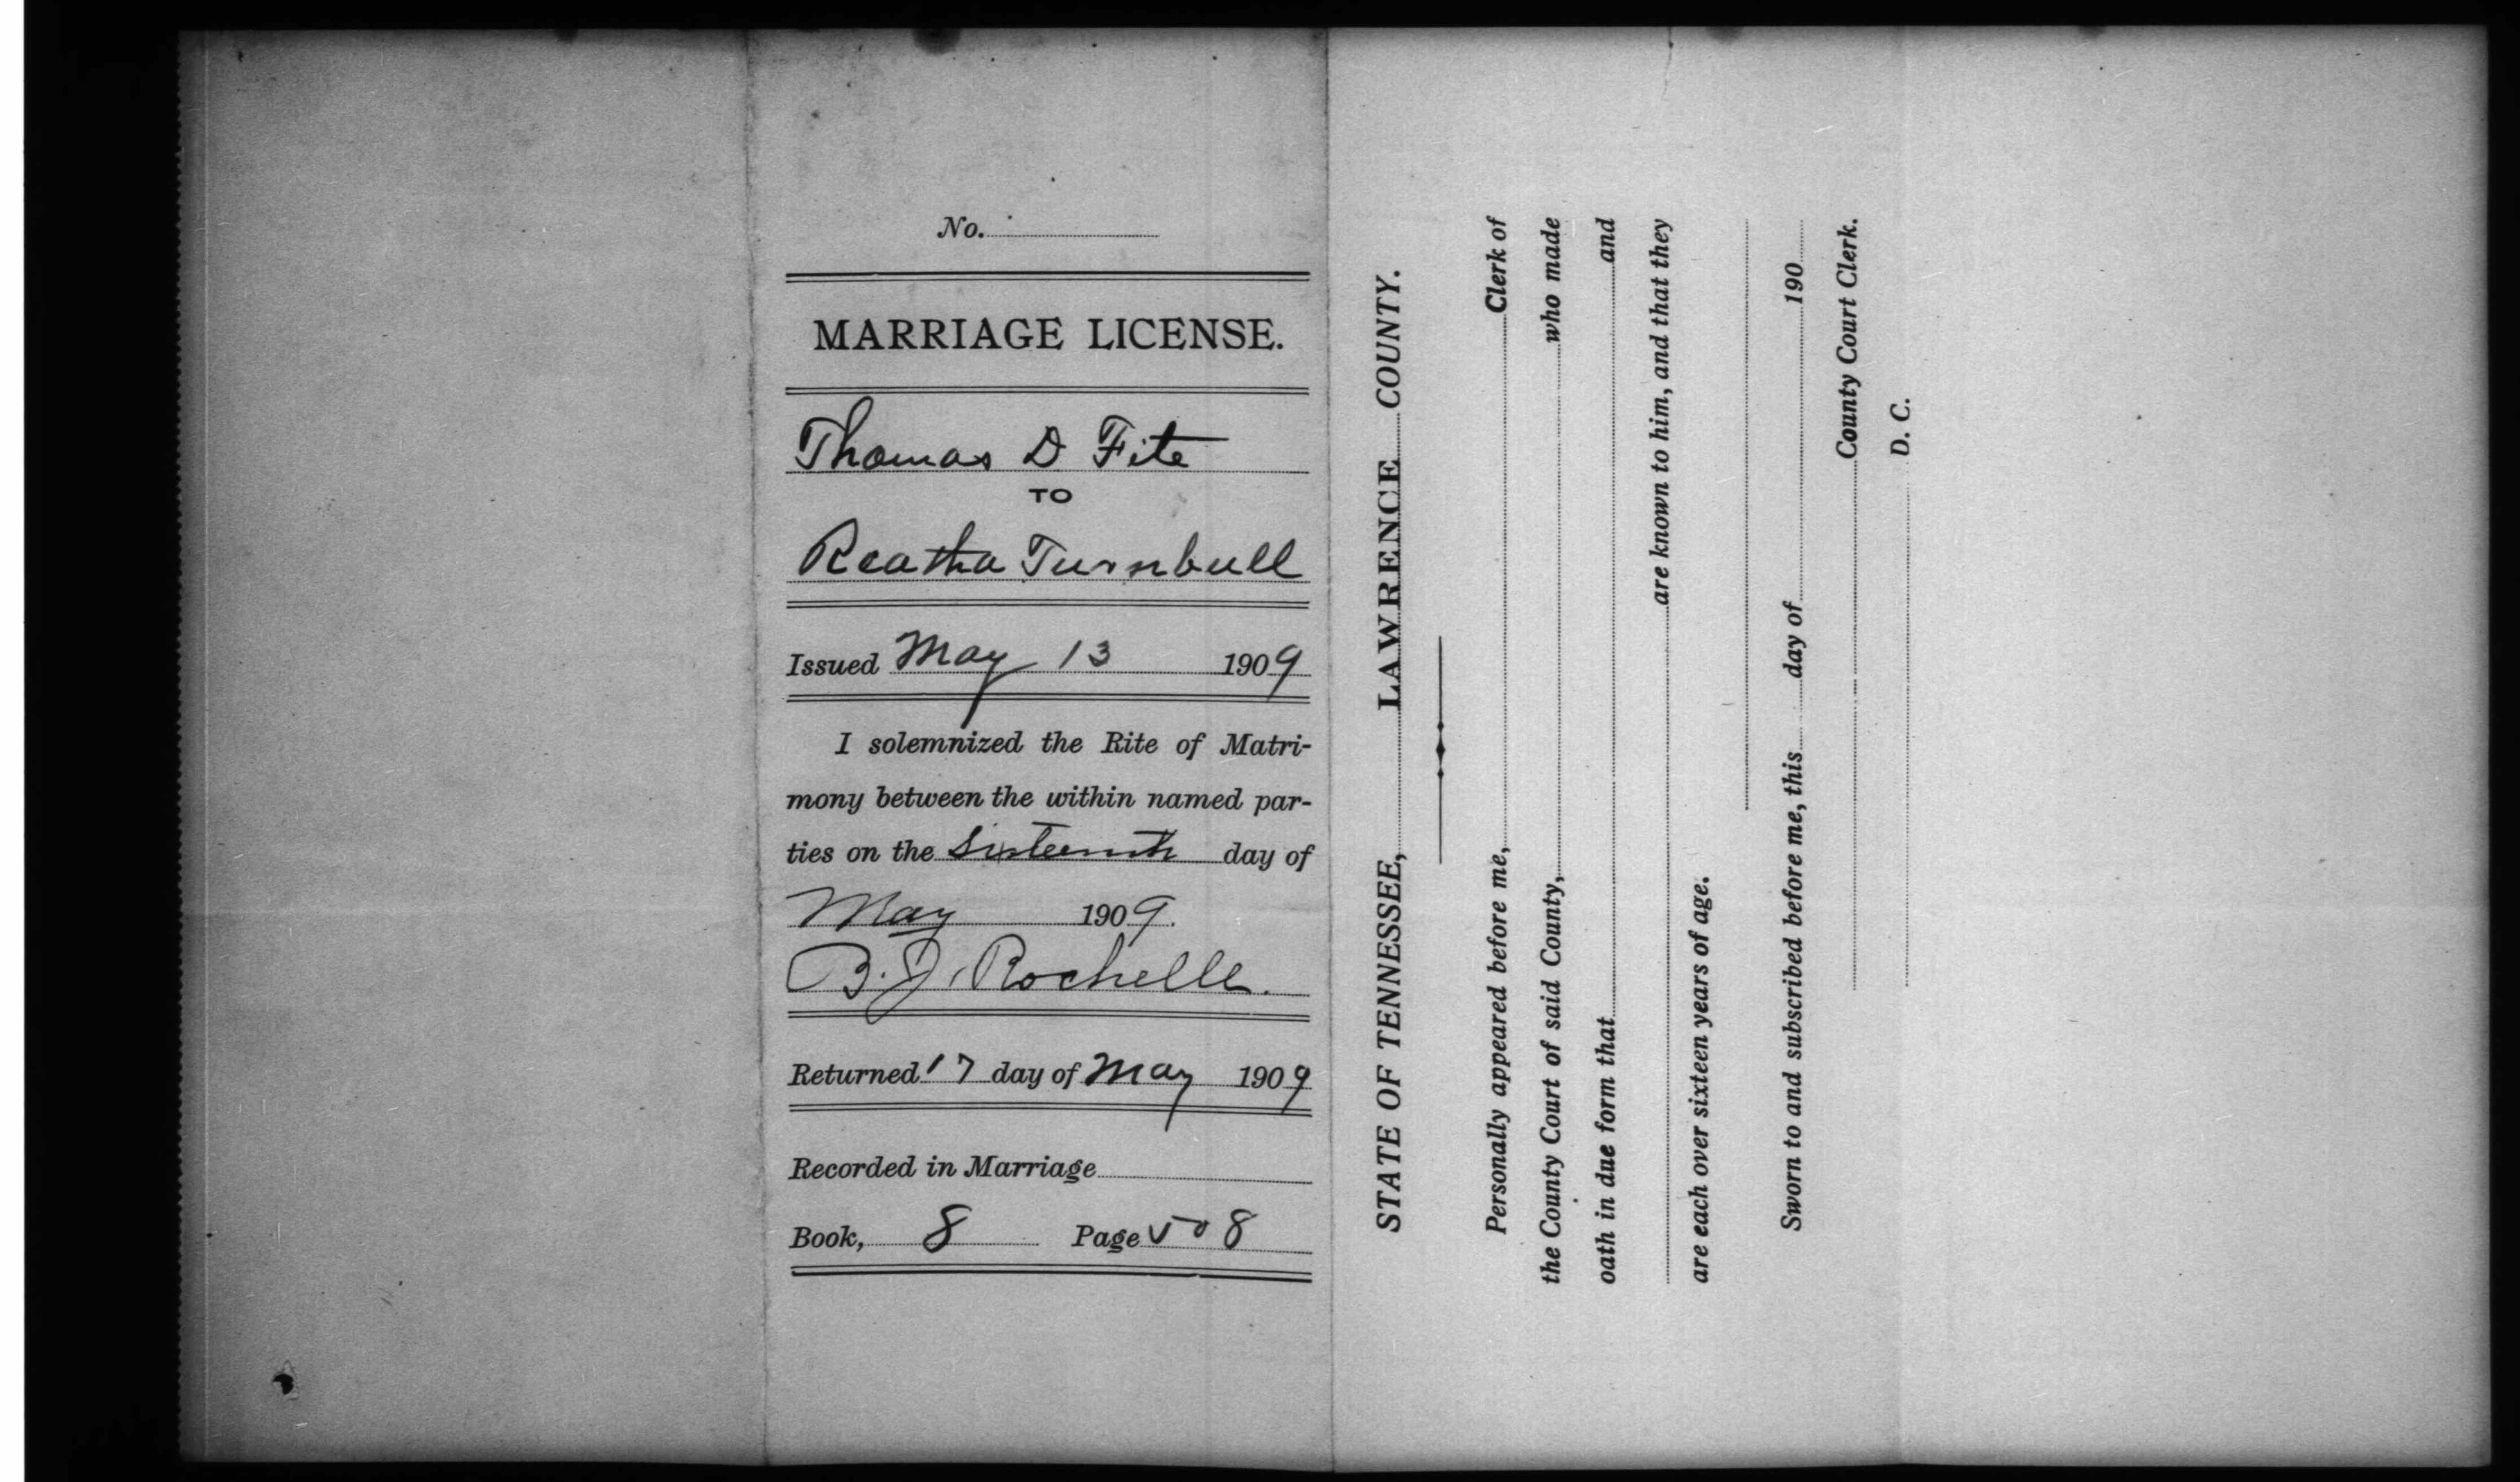 No.
MARRIAGE LICENSE.
Thomas D Fite
TO
Reatha Turnbull
Issued May 13 1909
I solemnized the Rite of Matri-
mony between the within named par-
ties on the Sixteenth day of
May 1909.
B. J. Rochelle.
Returned 17 day of May 1909
Recorded in Marriage
Book, 8 Page 508
STATE OF TENNESSEE, LAWRENCE COUNTY.
Personally appeared before me, Clerk of
the County Court of said County, who made
oath in due form that and
are known to him, and that they
are each over sixteen years of age.
Sworn to and subscribed before me, this day of 190
County Court Clerk.
D. C.